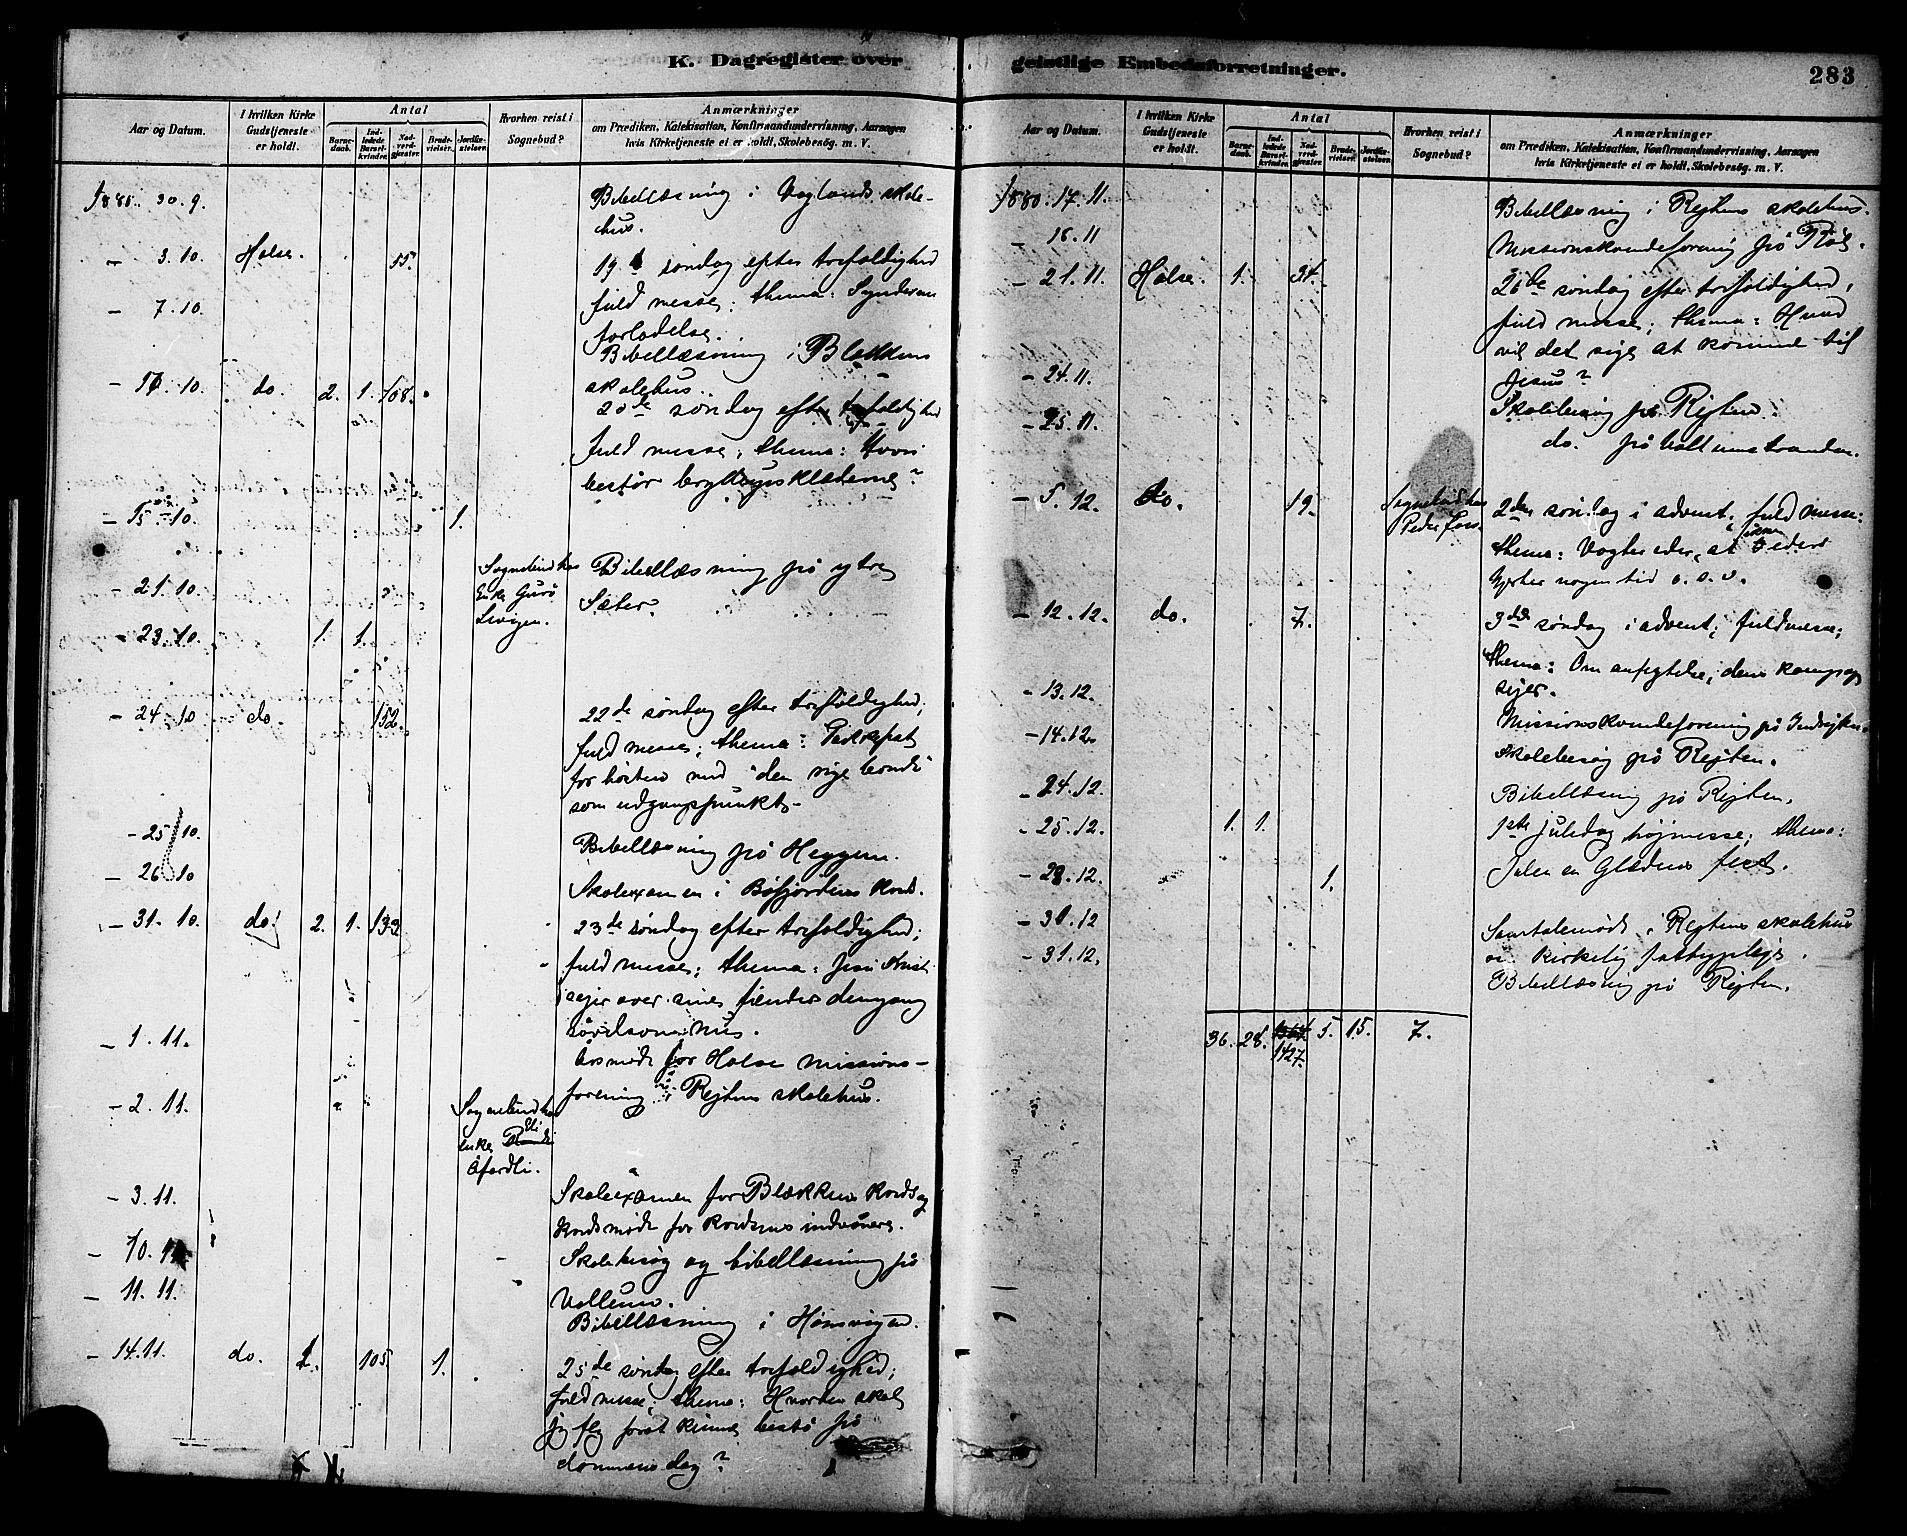 K. Dagregister over
Aar og Datum.
I hvilken Kirke Gudstjeneste er holdt.
Antal
Barnedaab.
Indledede Barselkvinder.
Nadverdgjæster.
Brudevielser.
Jordfæstelser.
Hvorhen reist i Sognebud?
Anmærkninger
om Prædiken, Katekisation, Konfirmandundervisning, Aarsagen
hvis Kirketjeneste ei er holdt, Skolebesøg. m. V.
1880. 30.9. Bibellæsning i Voglands skole-
hus.
- 3.10 Halse. 55. 19 søndag efter trefoldighed
fuld messe; thema: Syndernes
forladelse.
- 7.10. Bibellæsning i Blekkens
skolehus.
- 10. do. 2. 1. 108. 20de søndag efter trefoldighed
fuld messe; thema: Hvori
består bryllupsklæderne?
- 15.10. 1.
- 21.10 Sognebud hos Enke Guro
Bibellæsning på ytre
Sæter.
- 23.10. 1. 1.
- 24.10 do. 152. 22de søndag efter trefoldighed;
fuld messe; thema:
for høsten med "den rige bonde"
som udgangspunkt.
- 25/10. Bibellæsning på Heggem.
- 26.10 Skolexamen i Bøfjordens kreds.
- 31.10. do. 2. 1. 133 23de søndag efter trefoldighed;
fuld messe; thema: Jesu Krist
sejer over sine fiender dengang
såvelsom nu.
- 1.11. Årsmøde for Halse missions-
forening i Rejtens skolehus.
- 2.11. Sognebud hos
enke Eli
- 3.11. Skolexamen for Blekkens kreds og
kredsmøde for kredsens indvånere.
- 10.11 Skolebesøg og bibellæsning på
Vollum.
- 11.11. Bibellæsning i Hamsvigen.
- 14.11. do. 1. 105. 1. 25de søndag efter trefoldighed;
fuld messe; thema: Hvorden skal
jeg kunne bestå på
dommens dag?
geistlige Embedsforretninger.
283
Aar og Datum.
I hvilken Kirke Gudstjeneste er holdt.
Antal
Barnedaab.
Indledede Barselkvinder.
Nadverdgjæster.
Brudevielser.
Jordfæstelser.
Hvorhen reist i Sognebud?
Anmærkninger
om Prædiken, Katekisation, Konfirmandundervisning, Aarsagen
hvis Kirketjeneste ei er holdt, Skolebesøg. m. V.
1880. 17.11. Bibellæsning i Rejtens skolehus.
- 18.11 Missionskvindeforening på Røl.
- 21.11. Halse. 1. 34. 26de søndag efter trefoldighed;
fuld messe; thema: Hvad
vil det sige at komme til
Jesus?
- 24.11. Skolebesøg på Rejten.
- 25.11. do. på Valsumstranden.
- 5.12. do. 19. Sognebud hos
2den søndag i advent; fuld messe;
thema: Vogter eder, at eders
hjerter nogen tid o.s.v.
- 12.12. do. 7. 3die søndag i advent; fuld messe;
thema: Om anfegtelse; dens kamp og
sejer.
- 13.12. Missionskvindeforening på Indrejten.
- 14.12. Skolebesøg på Rejten.
- 24.12. Bibellæsning på Rejten.
- 25.12. 1. 1. 1ste juledag højmesse; thema:
Julen en Glædens fest.
- 28.12. 1.
- 30.12 Samtalemøde i Rejtens skolehus
- 31.12. Bibellæsning på Rejten.
36. 28. 1427. 5. 15. 7.